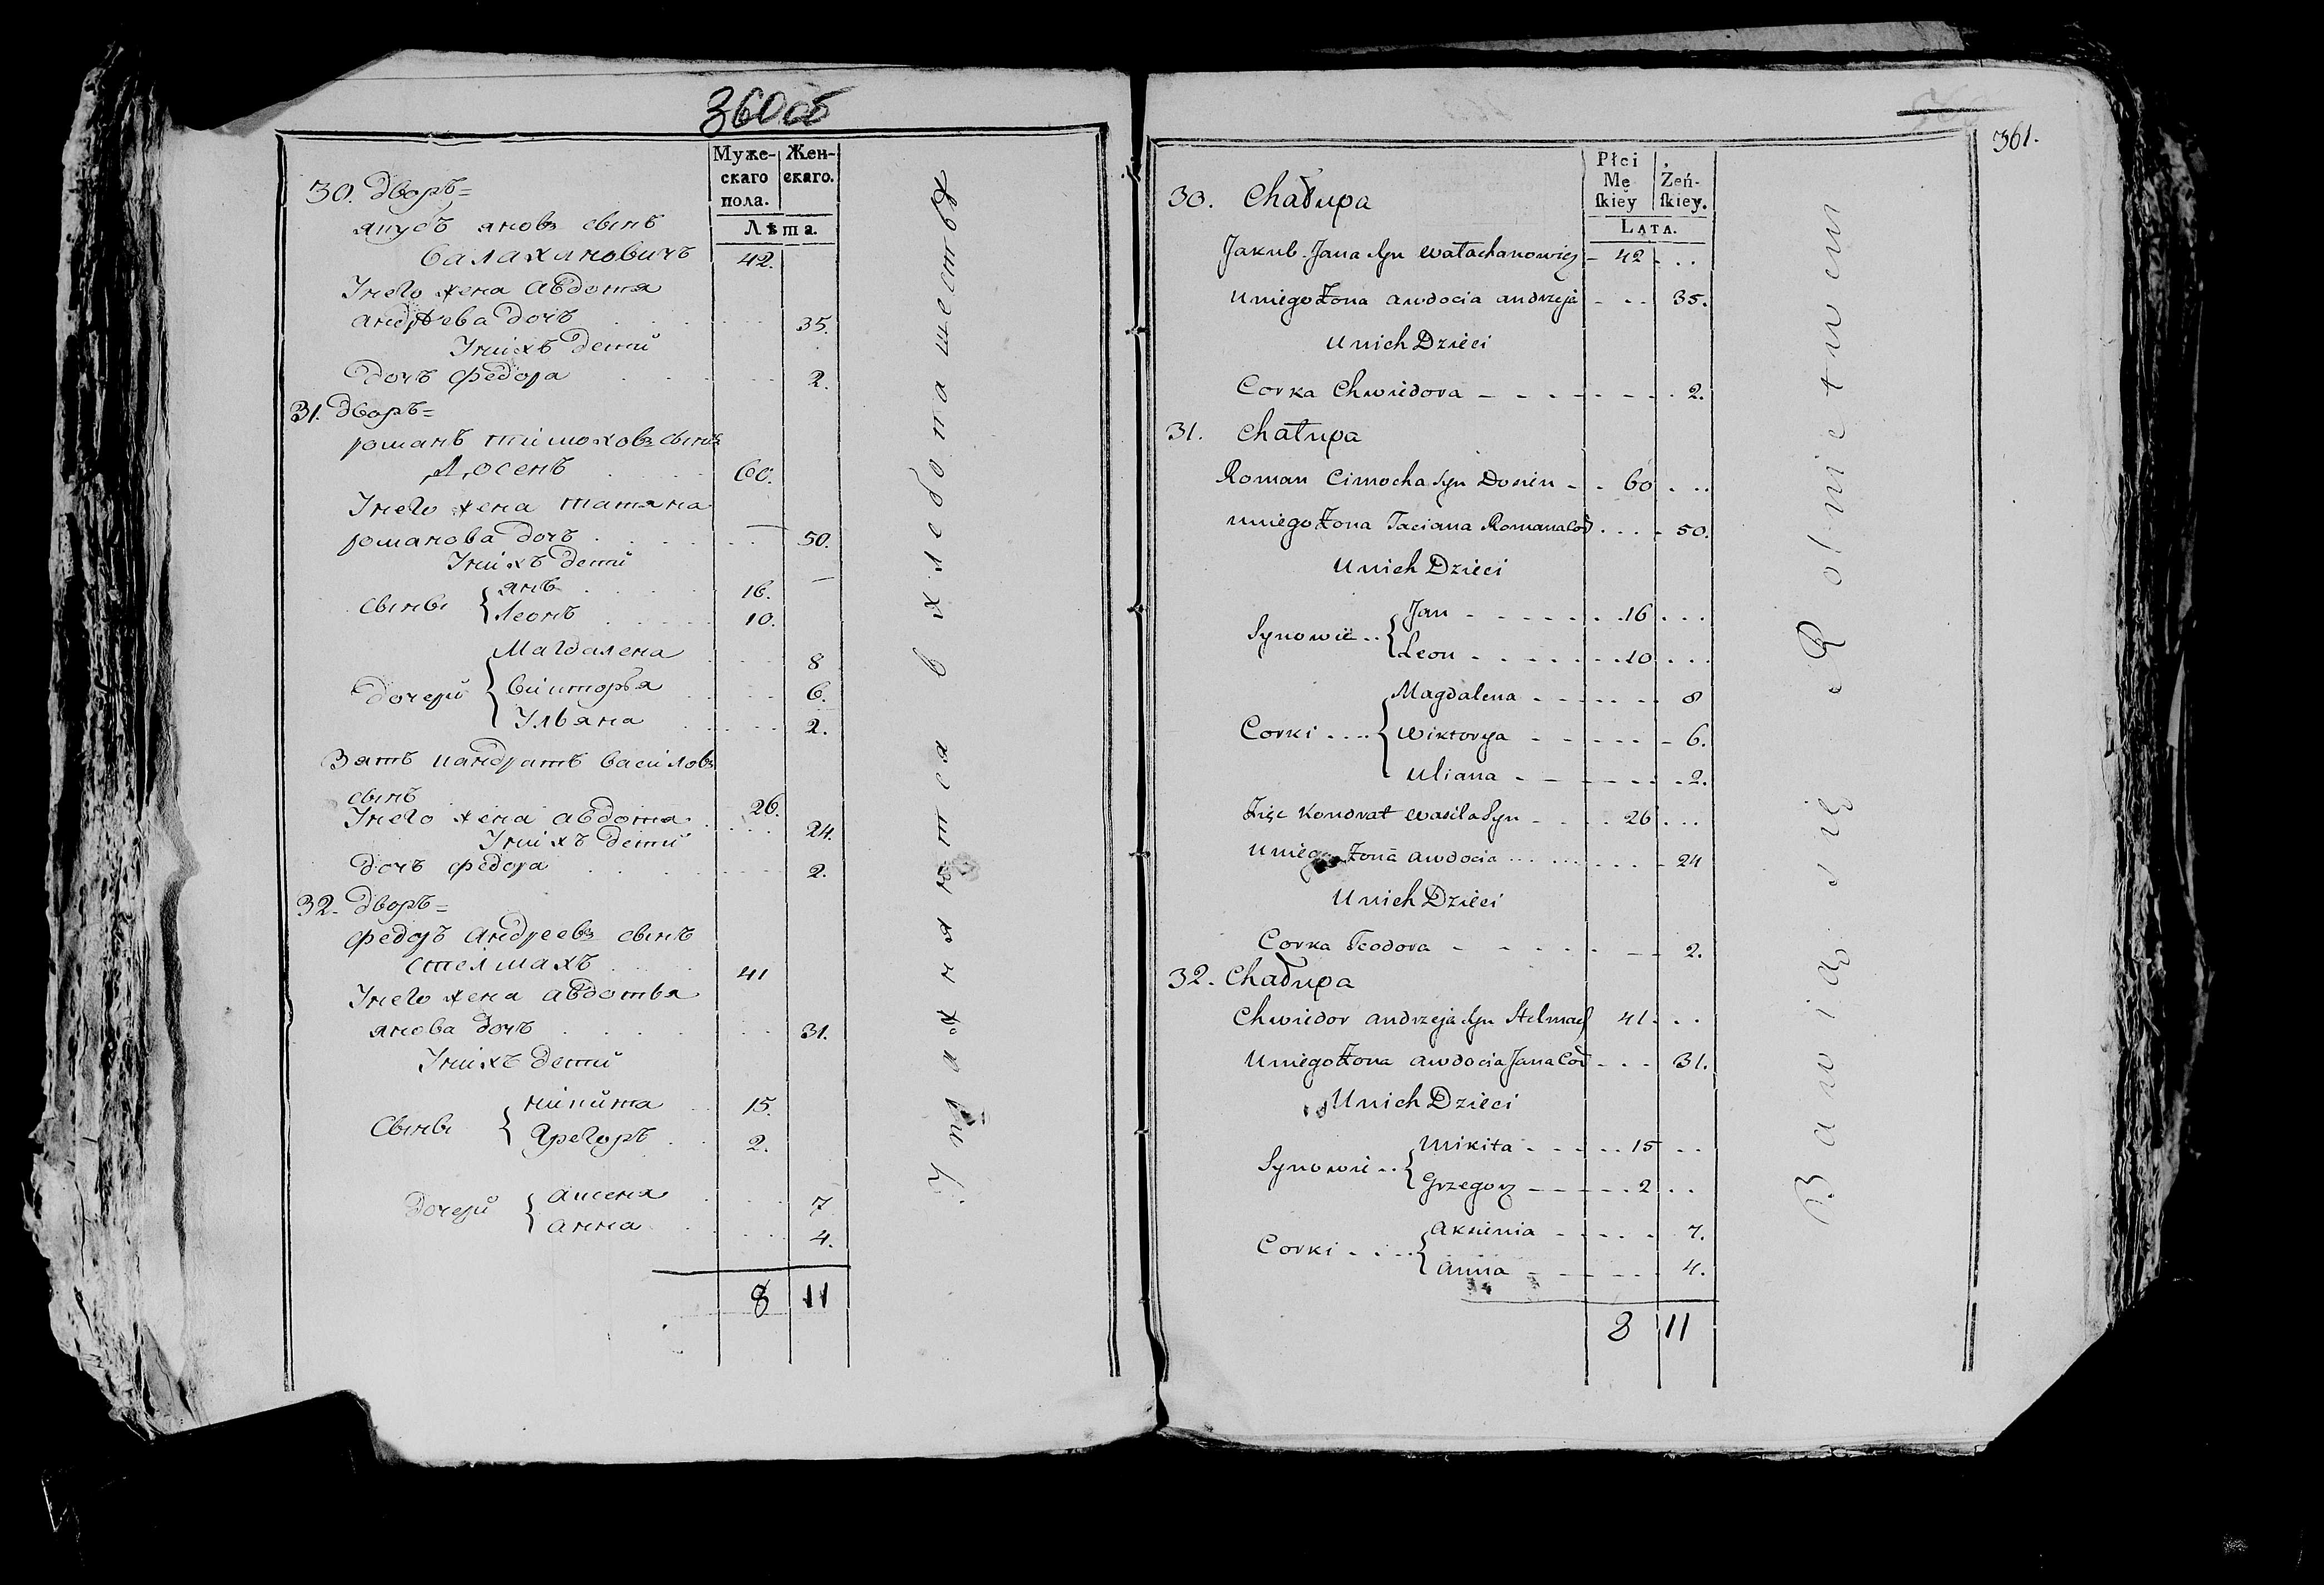 360 об
Муже-
скаго
пола.
Жен-
скаго.
Лѣта.
30. Дворъ=
якубъ яновъ сынъ
валахановичъ 42.
Унего жена авдотя
андрѣева дочъ 35.
Унихъ дети
дочъ федора 2.
31. Дворъ=
романъ тимоховъ сынъ
Досенъ 60.
Унего жена татяна
романова дочъ 50.
Унихъ дети
Сынвы { янъ 16.
Леонъ 10.
дочери { Магдалена 8
викторья 6.
Ульяна 2.
Зять кандратъ василовъ
сынъ 26.
Унего жена авдотя 24.
Унихъ дети
дочъ федора 2.
32. Дворъ=
федоръ андреевъ сынъ
Стелмахъ 41
Унего жена авдотья
янова дочъ 31.
Унихъ дети
Сынвы { никита 15.
Грегоръ 2.
дочери { аксеня 7
анна 4.
8 11
Упражняются в хлебопашестве
361.
Płci
Mę
ſkiey
Żeń-
ſkiey.
LATA.
30. Chałupa
Jakub Jana Syn Wałachanowicz - 42 - . .
Uniego Żona Awdocia Andrzeja - - - 35.
Unich Dzieci
Corka Chwiedora - - - - - - - 2.
31. Chałupa
Roman Cimocha Syn Dosien - - 60 . ..
Uniego Żona Taciana Romana Cor . . . - 50.
Unich Dzieci
Synowie .. { Jan - - - - - - . 16 . . .
Leon - - - - - . . 10 . . .
Corki .... { Magdalena - - - - - - 8
Wiktorya - - - - - - 6.
Uliana - - - - - - 2.
Zięc Kondrat Wasila Syn - - . . 26 . . .
Uniego Żona Awdocia ... ... - - . - 24
Unich Dzieci
Corka Teodora - - - - - - - 2.
32. Chałupa
Chwiedor Andrzeja Syn Stelmach 41 . . .
Uniego Żona Awdocia Jana Cor - - - 31.
Unich Dzieci
Synowie .. { Mikita - - - - . . 15 - -
Grzegorz - - - - . 2 . .
Corki - . .. { Aksienia - - - - - 7.
Anna - - - - - 4.
8 11
Bawią się Rolnictwem